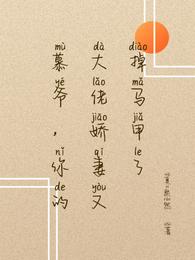 mù yé nǐ de
慕爷，你的
dà lǎo jiāo qī yòu
大佬娇妻又
diào mǎ jiǎ le
掉马甲了